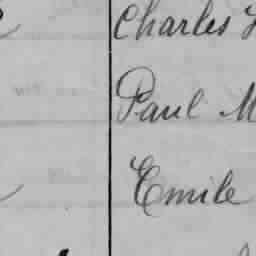 Charles
Paul M
Emile